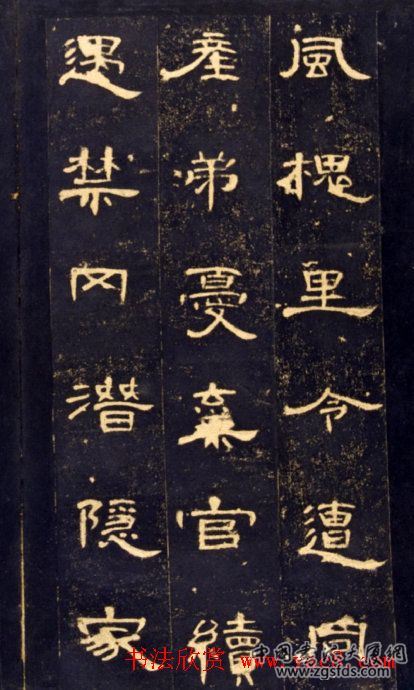 風槐里令遭同
產弟憂棄官續
遇禁网潛隱家
书法欣赏
中国书法大展网
www.zgsfds.com